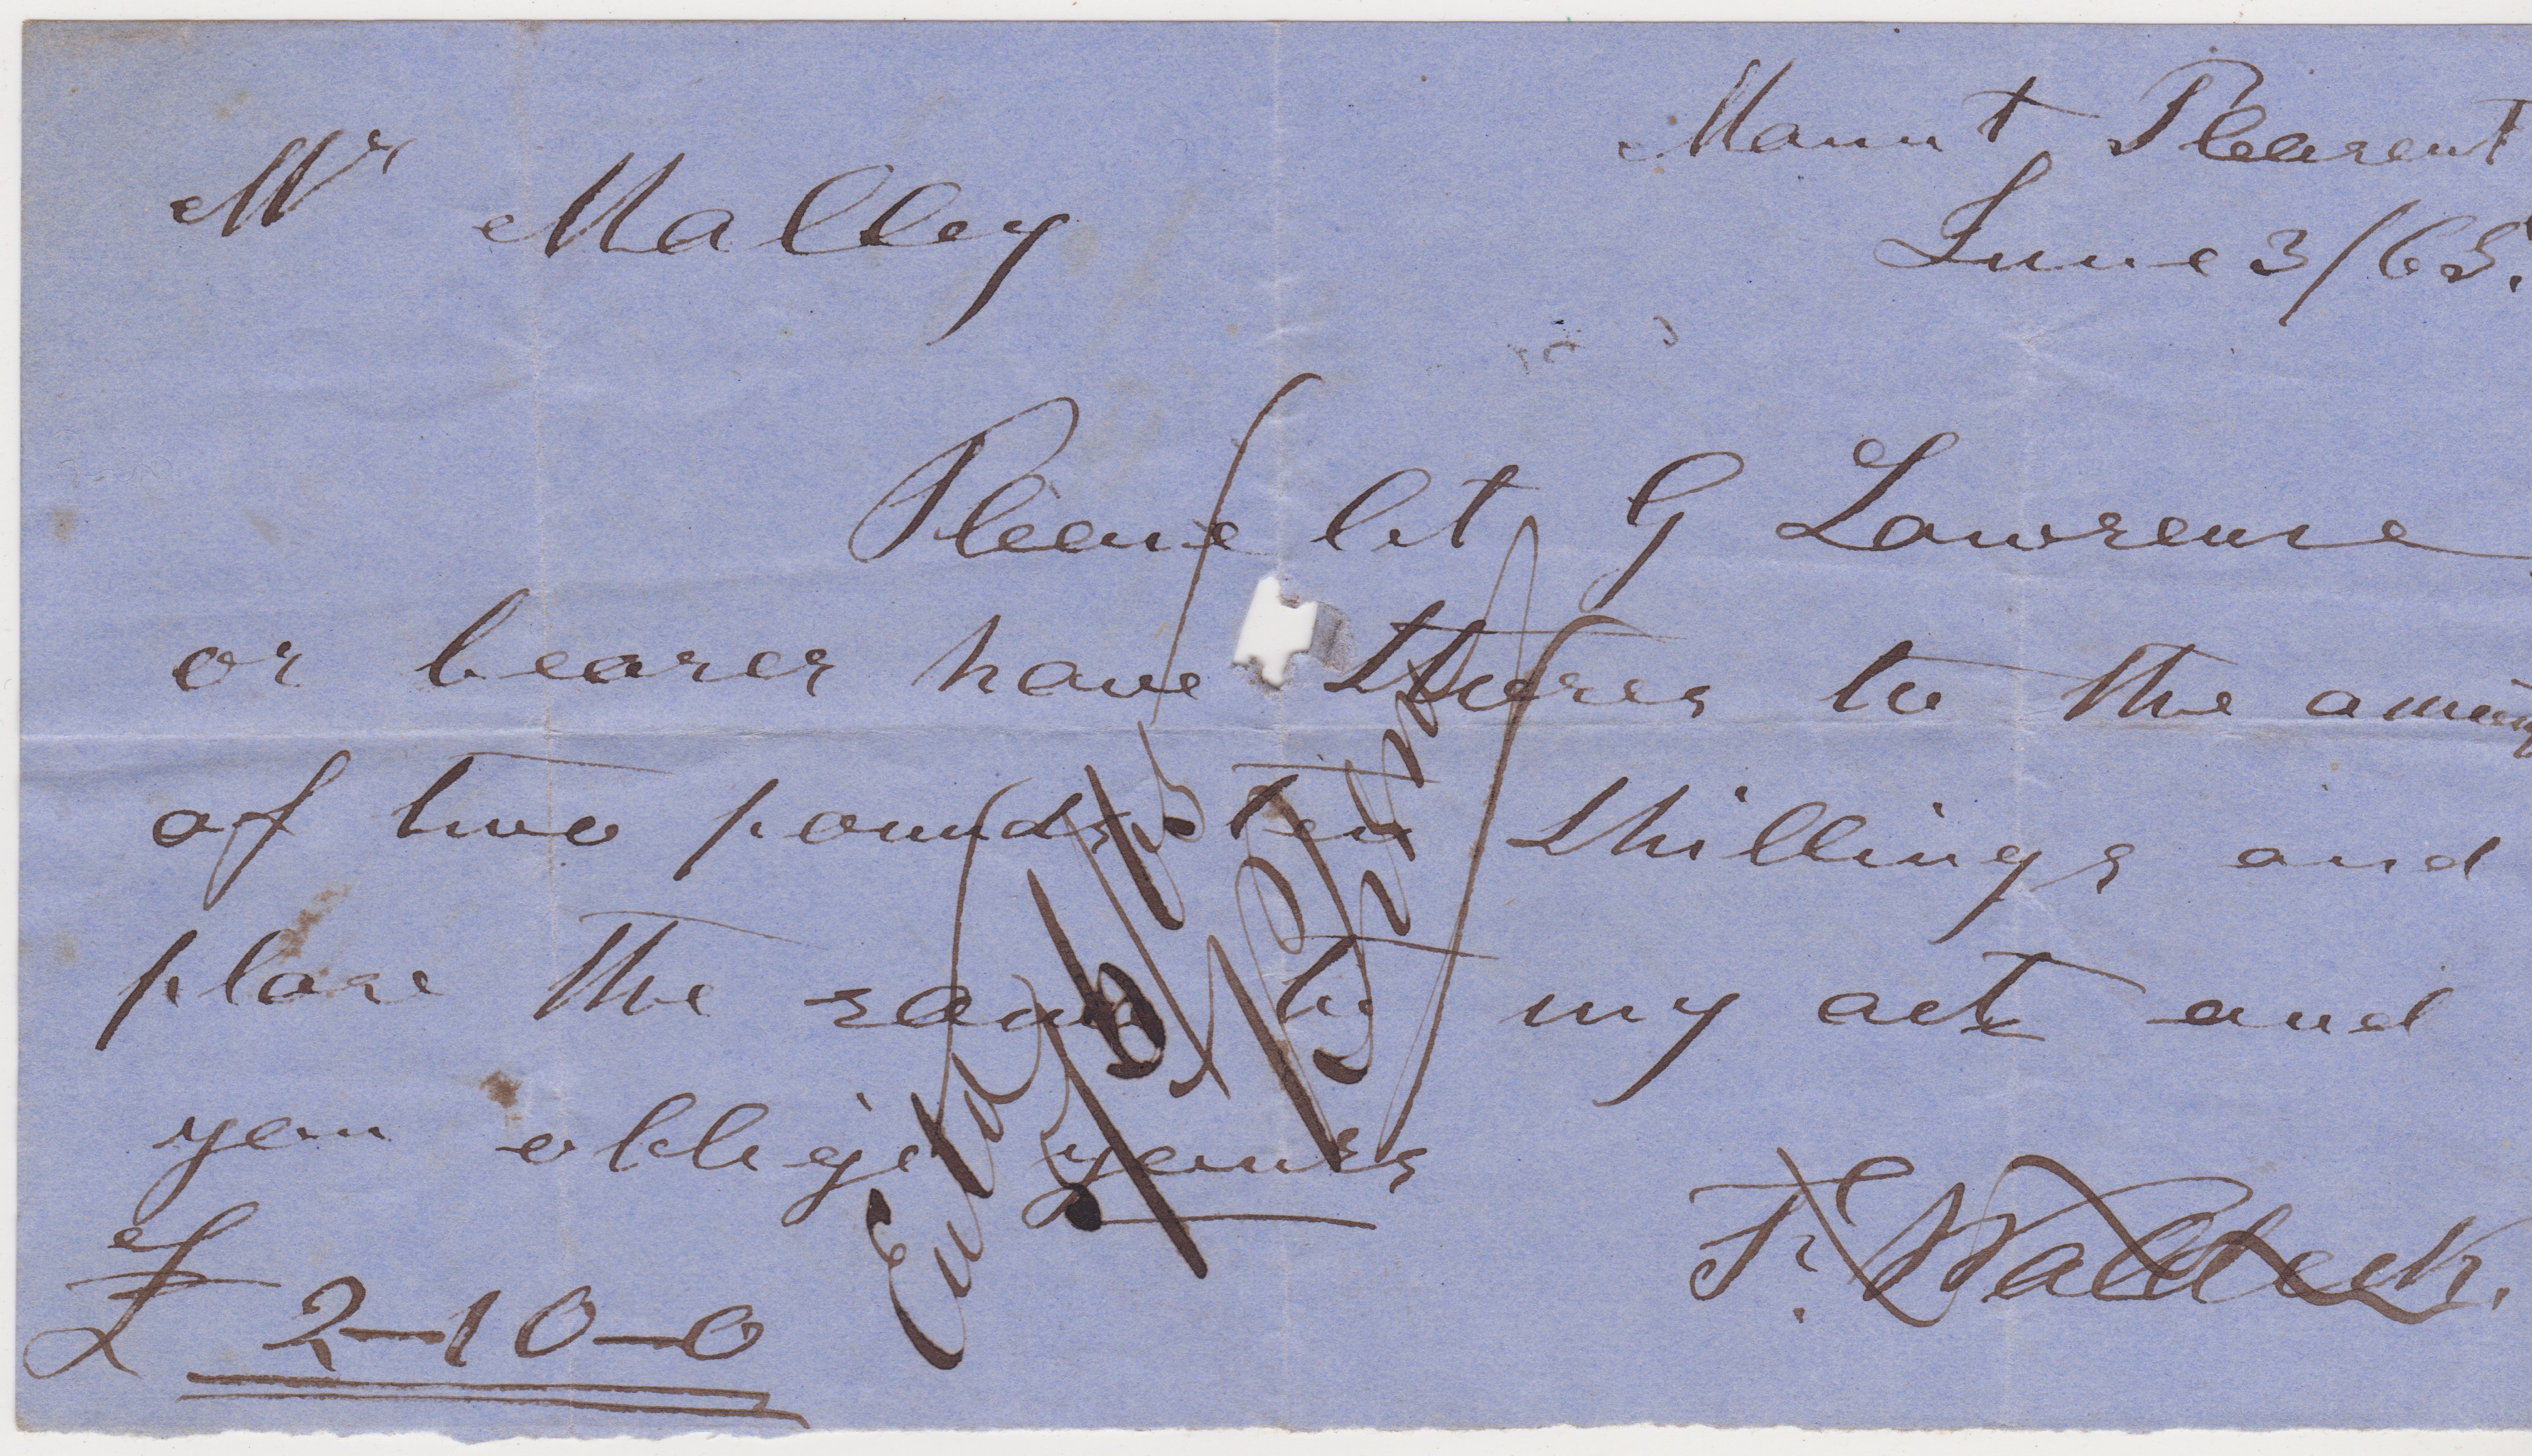 Mount Pleasent
Mr Malley
June 3/65.
Please let G Lawrence
or bearer have stores to the amount
of two pounds ten shillings and
place the same to my act and
you oblige yours
F. Waldeck.
£ 2-10-0
Entd